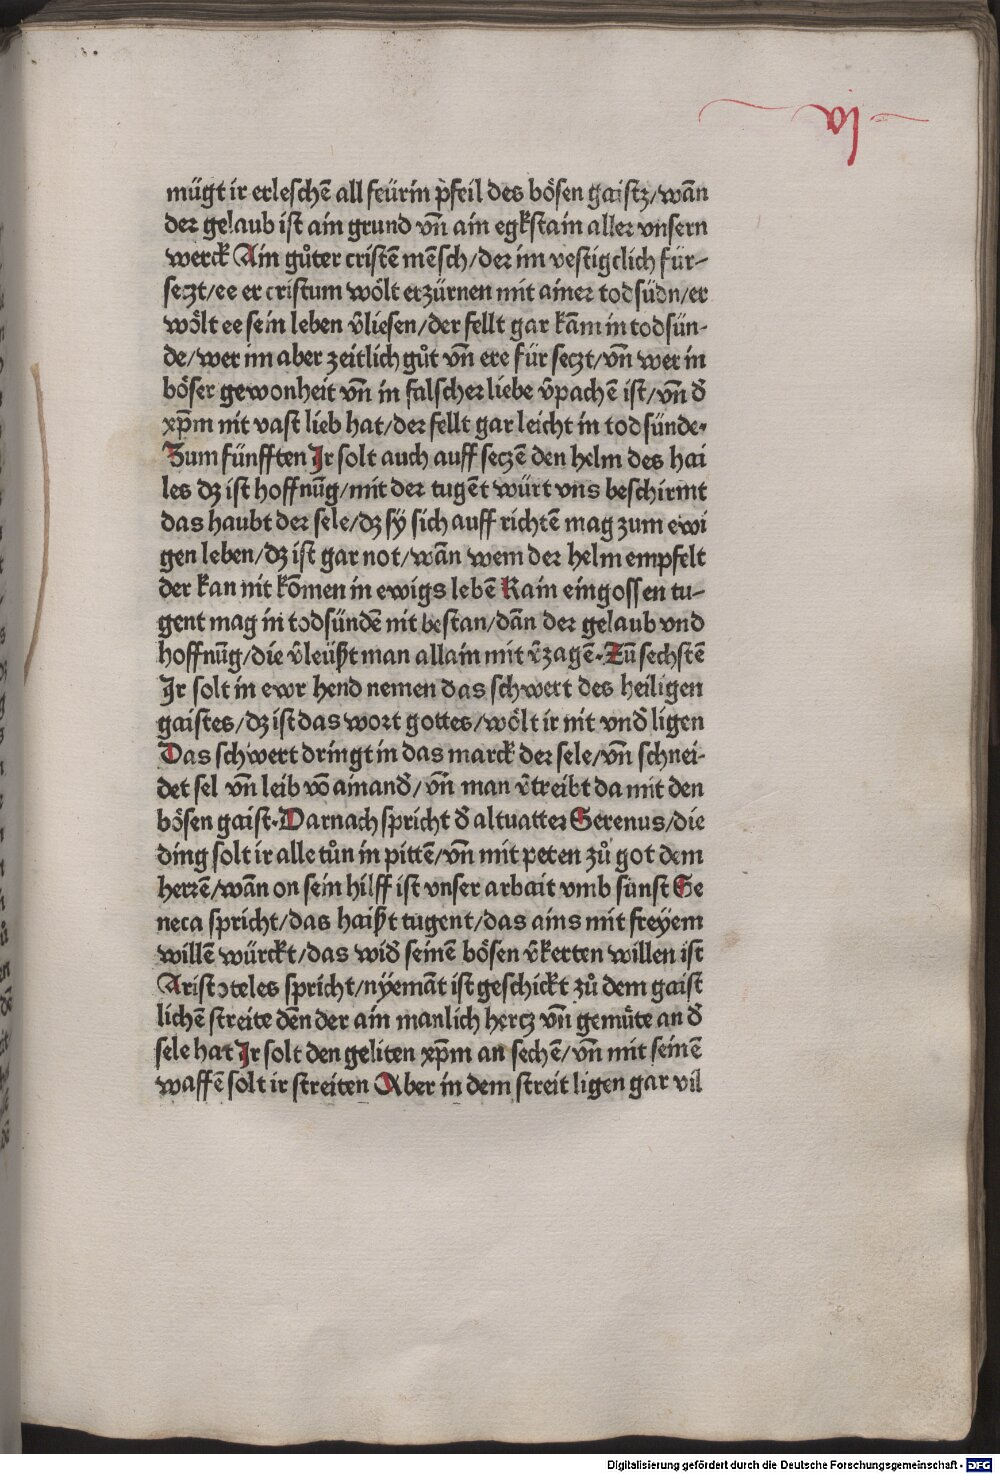 vj
mügt ir erleschē all feürin pfeil des bösen gaistz/wān
der gelaub ist ain grund vñ ain egkstain aller vnsern
werck Ain gůter cristē mēsch/der im vestigclich für-
seczt/ee er cristum wölt erzürnen mit ainer todsüdn/er
wölt ee sein leben v̄liesen/der fellt gar kām in todsün-
de/wer im aber zeitlich gůt vñ ere für seczt/vñ wer in
böser gewonheit vñ in falscher liebe v̄pachē ist/vñ đ
xp̄m nit vast lieb hat/der fellt gar leicht in todsünde·
Zum fünfften Jr solt auch auff seczē den helm des hai
les dz ist hoffnūg/mit der tugēt würt vns beschirmt
das haubt der sele/dz sÿ sich auff richtē mag zum ewi
gen leben/dz ist gar not/wān wem der helm empfelt
der kan nit kōmen in ewigs lebē Kain eingossen tu-
gent mag in todsündē nit bestan/dān der gelaub vnd
hoffnūg/die v̄leüßt man allain mit v̄zagē·Zū sechstē
Jr solt in ewr hend nemen das schwert des heiligen
gaistes/dz ist das wort gottes/wölt ir nit vnđ ligen
Das schwert dringt in das marck der sele/vñ schnei-
det sel vñ leib vō ainanđ/vñ man v̄treibt da mit den
bösen gaist·Darnach spricht đ altuatter Serenus/die
ding solt ir alle tůn in pittē/vñ mit peten zů got dem
herrē/wān on sein hilff ist vnser arbait vmb sunst Se
neca spricht/das haißt tugent/das ains mit freÿem
willē würckt/das wiđ seinē bösen v̄kerten willen ist
Aristoteles spricht/nÿemāt ist geschickt zů dem gaist
lichē streite dēn der ain manlich hercz vñ gemüte an đ
sele hat Jr solt den geliten xp̄m an sechē/vñ mit seinē
waffē solt ir streiten Aber in dem streit ligen gar vil
Digitalisierung gefördert durch die Deutsche Forschungsgemeinschaft - DFG